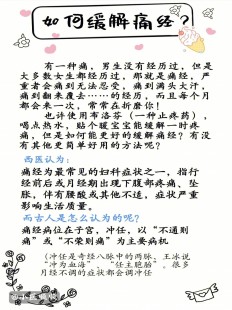 如何缓解痛经？
有一种痛，男生没有经历过，但是
大多数女生都经历过，那就是痛经，严
重者会痛到无法忍受，痛到满头大汗，
痛到翻来覆去……的经历，而且每个月
都会来一次，常常在折磨你！
也许使用布洛芬（一种止疼药），
喝点热水，贴个暖宝宝能缓解一时疼
痛，但是如何能更好的缓解痛经？有没
有其他更简单好用的方法呢？
西医认为：
痛经为最常见的妇科症状之一，指行
经前后或月经期出现下腹部疼痛、坠
胀，伴有腰酸或其他不适，症状严重
影响生活质量。
而古人是怎么认为的呢？
痛经病位在子宫，冲任，以“不通则
痛”或“不荣则痛”为主要病机
（冲任是奇经八脉中的两脉，王冰说
“冲为血海” “任主胞胎”，很多
月经不调的症状都会调冲任